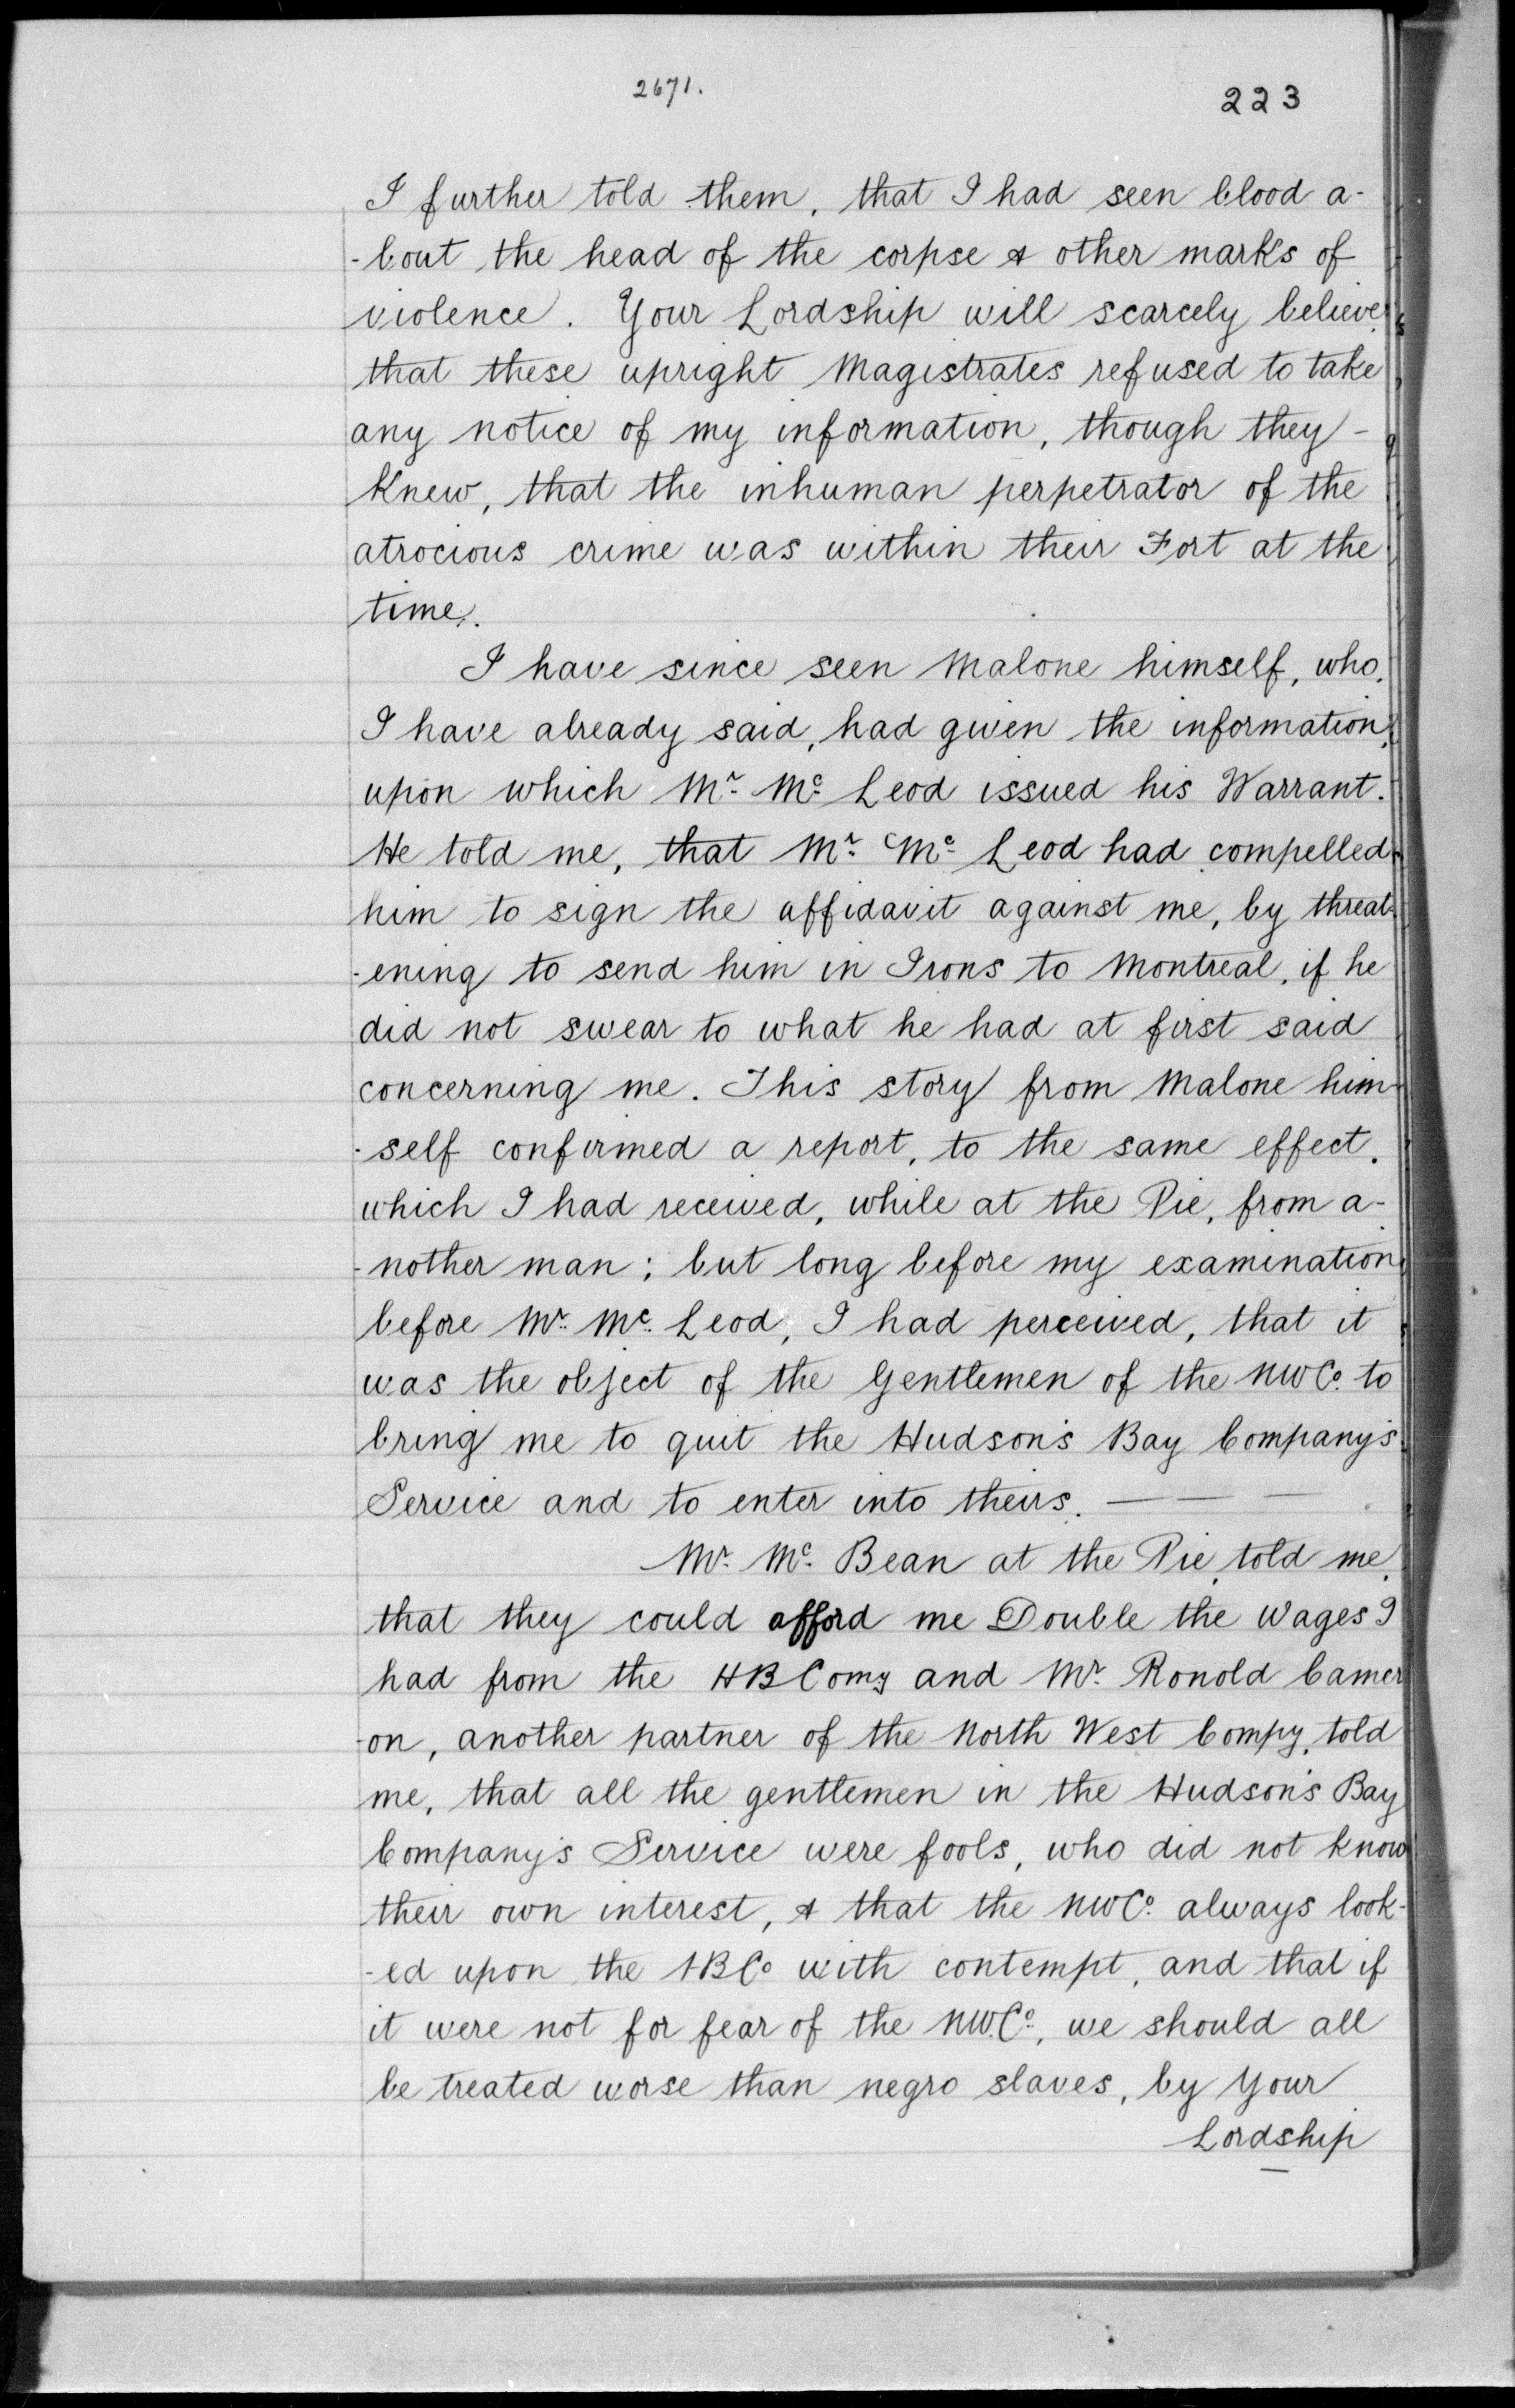 2671.
223
I further told them, that I had seen blood a-
-bout the head of the corpse & other marks of
violence. Your Lordship will scarcely believe
that these upright Magistrates refused to take
any notice of my information, though they -
Knew, that the inhuman perpetrator of the
atrocious crime was within their Fort at the
time.
I have since seen Malone himself, who,
I have already said, had given the information,
upon which Mr. Mc. Leod issued his Warrant.
He told me, that Mr. Mc. Leod had compelled
him to sign the affidavit against me, by threat-
-ening to send him in Irons to Montreal, if he
did not swear to what he had at first said
concerning me. This story from Malone him-
-self confirmed a report, to the same effect,
which I had received, while at the Pie, from a-
-nother man; but long before my examination
before Mr. Mc. Leod, I had perceived, that it
was the object of the Gentlemen of the NWCo. to
bring me to quit the Hudson's Bay Company's
Service and to enter into theirs. — — —
Mr. Mc. Bean at the Pie, told me,
that they could afford me Double the Wages I
had from the HBComy and Mr. Ronold Camer
-on, another partner of the North West Compy, told
me, that all the gentlemen in the Hudson's Bay
Company's Service were fools, who did not know
their own interest, & that the NWCo. always look-
-ed upon the HBCo with contempt, and that if
it were not for fear of the NW.Co., we should all
be treated worse than negro slaves, by Your
Lordship